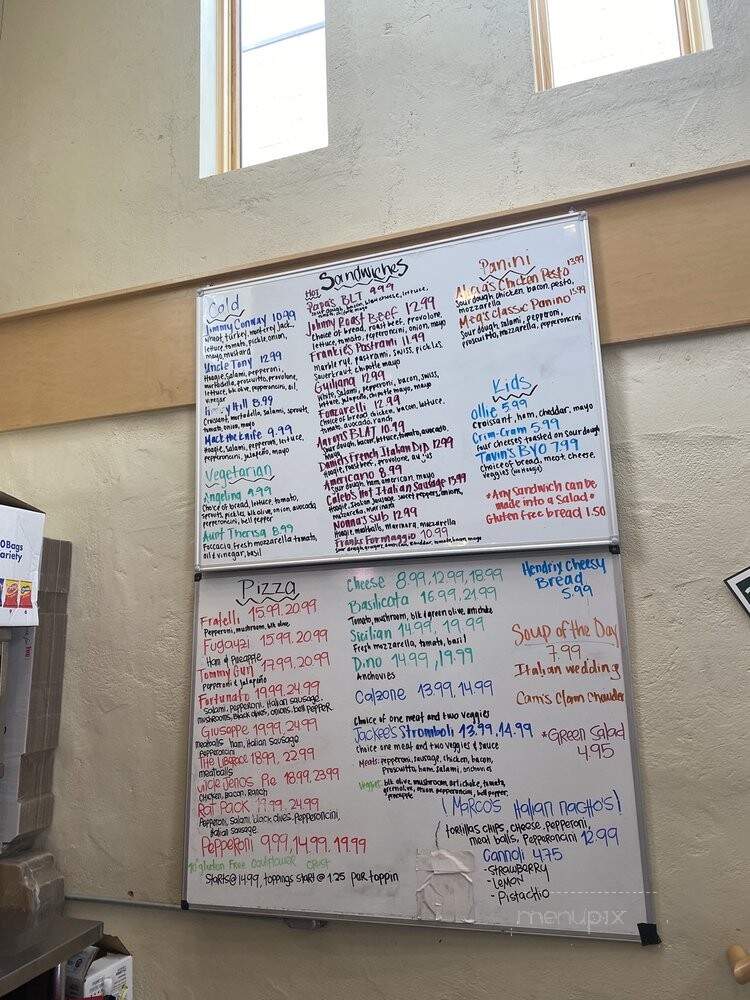 Sandwiches
Cold
Jimmy Conway 10.99
wheat, turkey, montrey jack,
lettuce, tomato, pickle, onion,
mayo, mustard
Uncle Tony 12.99
Hoagie, salami, pepperoni,
mortadella, proscuitto, provolone,
lettuce, blk olive, pepperoncini, oil,
vinegar
Hill 8.99
Croissant, mortadella, salami, sprouts,
tomato, onion, mayo
Mack the knife 9.99
Hoagie, salami, pepperoni, lettuce,
pepperoncini, jalapeño, mayo
Vegetarian
Angelina 9.99
Choice of bread, lettuce, tomato,
sprouts, pickles, blk olive, onion, avocado,
pepperoncini, bell pepper
Aunt Theresa 8.99
Foccacia, fresh mozzarella, tomato,
oil & vinegar, basil
Hot
Papa's BLT 9.99
lettuce,
Johnny Roast Beef 12.99
Choice of bread, roast beef, provolone,
lettuce, tomato, pepperoncini, onion, mayo
Frankie's Pastrami 11.49
Marble rye, pastrami, swiss, pickles,
Sauerkraut, chipotle mayo
Guiliana 12.99
White, salami, pepperoni, bacon, swiss,
lettuce, jalapeño, chipotle mayo, mayo
Fonzarelli 12.99
Choice of bread chicken, bacon, lettuce,
tomato, avocado, ranch
Aaron's BLAT 10.99
Sour dough, bacon, lettuce, tomato, avocado,
Daniel's French Italian Dip 12.99
Hoagie, roast beef, provolone, au jus
Americano 8.99
Sour dough, ham, american, mayo
Caleb's Hot Italian Sausage 13.99
Hoagie, Italian sausage, sweet peppers, onions,
mozzarella, marinara
Nonna's Sub 12.99
Hoagie, meatballs, marinara, mozzarella
Franks Formaggio 10.99
Panini
Alicia's Chicken Pesto 13.99
Sourdough, chicken, bacon, pesto,
mozzarella
Meg's Classic Panino 13.99
Sour dough, salami, pepperoni,
proscuitto, mozzarella, pepperoncini
Kids
Ollie 5.99
Croissant, ham, cheddar, mayo
Crim-Cram 5.99
Four cheeses toasted on sourdough
Tavin's BYO 7.99
Choice of bread, meat, cheese,
veggies (no Hoagie)
*Any Sandwich can be
made into a Salad*
Gluten free bread 1.50
Pizza
Fratelli 15.99, 20.99
Pepperoni, mushroom, blk olive
Fugayzi 15.99, 20.99
Ham & Pineapple
Tommy Gun 17.99, 20.99
pepperoni & jalapeño
Fortunato 19.99, 24.99
Salami, pepperoni, Italian sausage,
mushrooms, black olives, onions, bell pepper
Giuseppe 19.99, 24.99
meatballs, Ham, Italian Sausage
Pepperoncini
The Liberace 18.99, 22.99
meatballs
Uncle Jenos Pie 18.99, 23.99
Chicken, Bacon, Ranch
Rat Pack 19.99, 24.99
Pepperoni, Salami, black olives, Pepperoncini,
Italian sausage
Pepperoni 9.99, 14.99, 19.99
10" Gluten Free Cauliflower Crust
Starts @ 14.99, toppings start @ 1.25 per toppin
Cheese 8.99, 12.99, 18.99
Basilicata 16.99, 21.99
Tomato, mushroom, blk & green olive, artichoke
Sicilian 14.99, 19.99
Fresh mozzarella, tomato, basil
Dino 14.99, 19.99
Anchovies
Calzone 13.99, 14.99
Choice of one meat and two veggies
Jackee's Stromboli 13.99, 14.99
choice one meat and two veggies & sauce
Meats: pepperoni, sausage, chicken, bacon,
Proscuitto, ham, salami, anchovies
Veggies: blk olive, mushroom, artichoke, tomato,
green olive, onion, pepperoncini, bell pepper,
*pineapple
Hendrix Cheesy
Bread
5.99
Soup of the Day
7.99
Italian wedding
Cam's Clam Chowder
*Green Salad
4.95
(Marco's Italian nacho's)
(tortillas chips, cheese, pepperoni,
meat balls, Pepperoncini 12.99
Cannoli 4.75
- Strawberry
- Lemon
- Pistachio
menupix
0 Bags
ariety